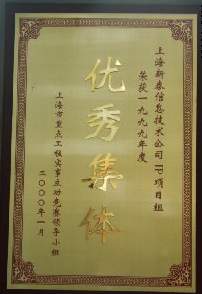 上海新信息技术公司IP项目组
荣获一九九九年度
优秀集体
上海市重点工程实事立功竞赛领导小组
二〇〇〇年一月